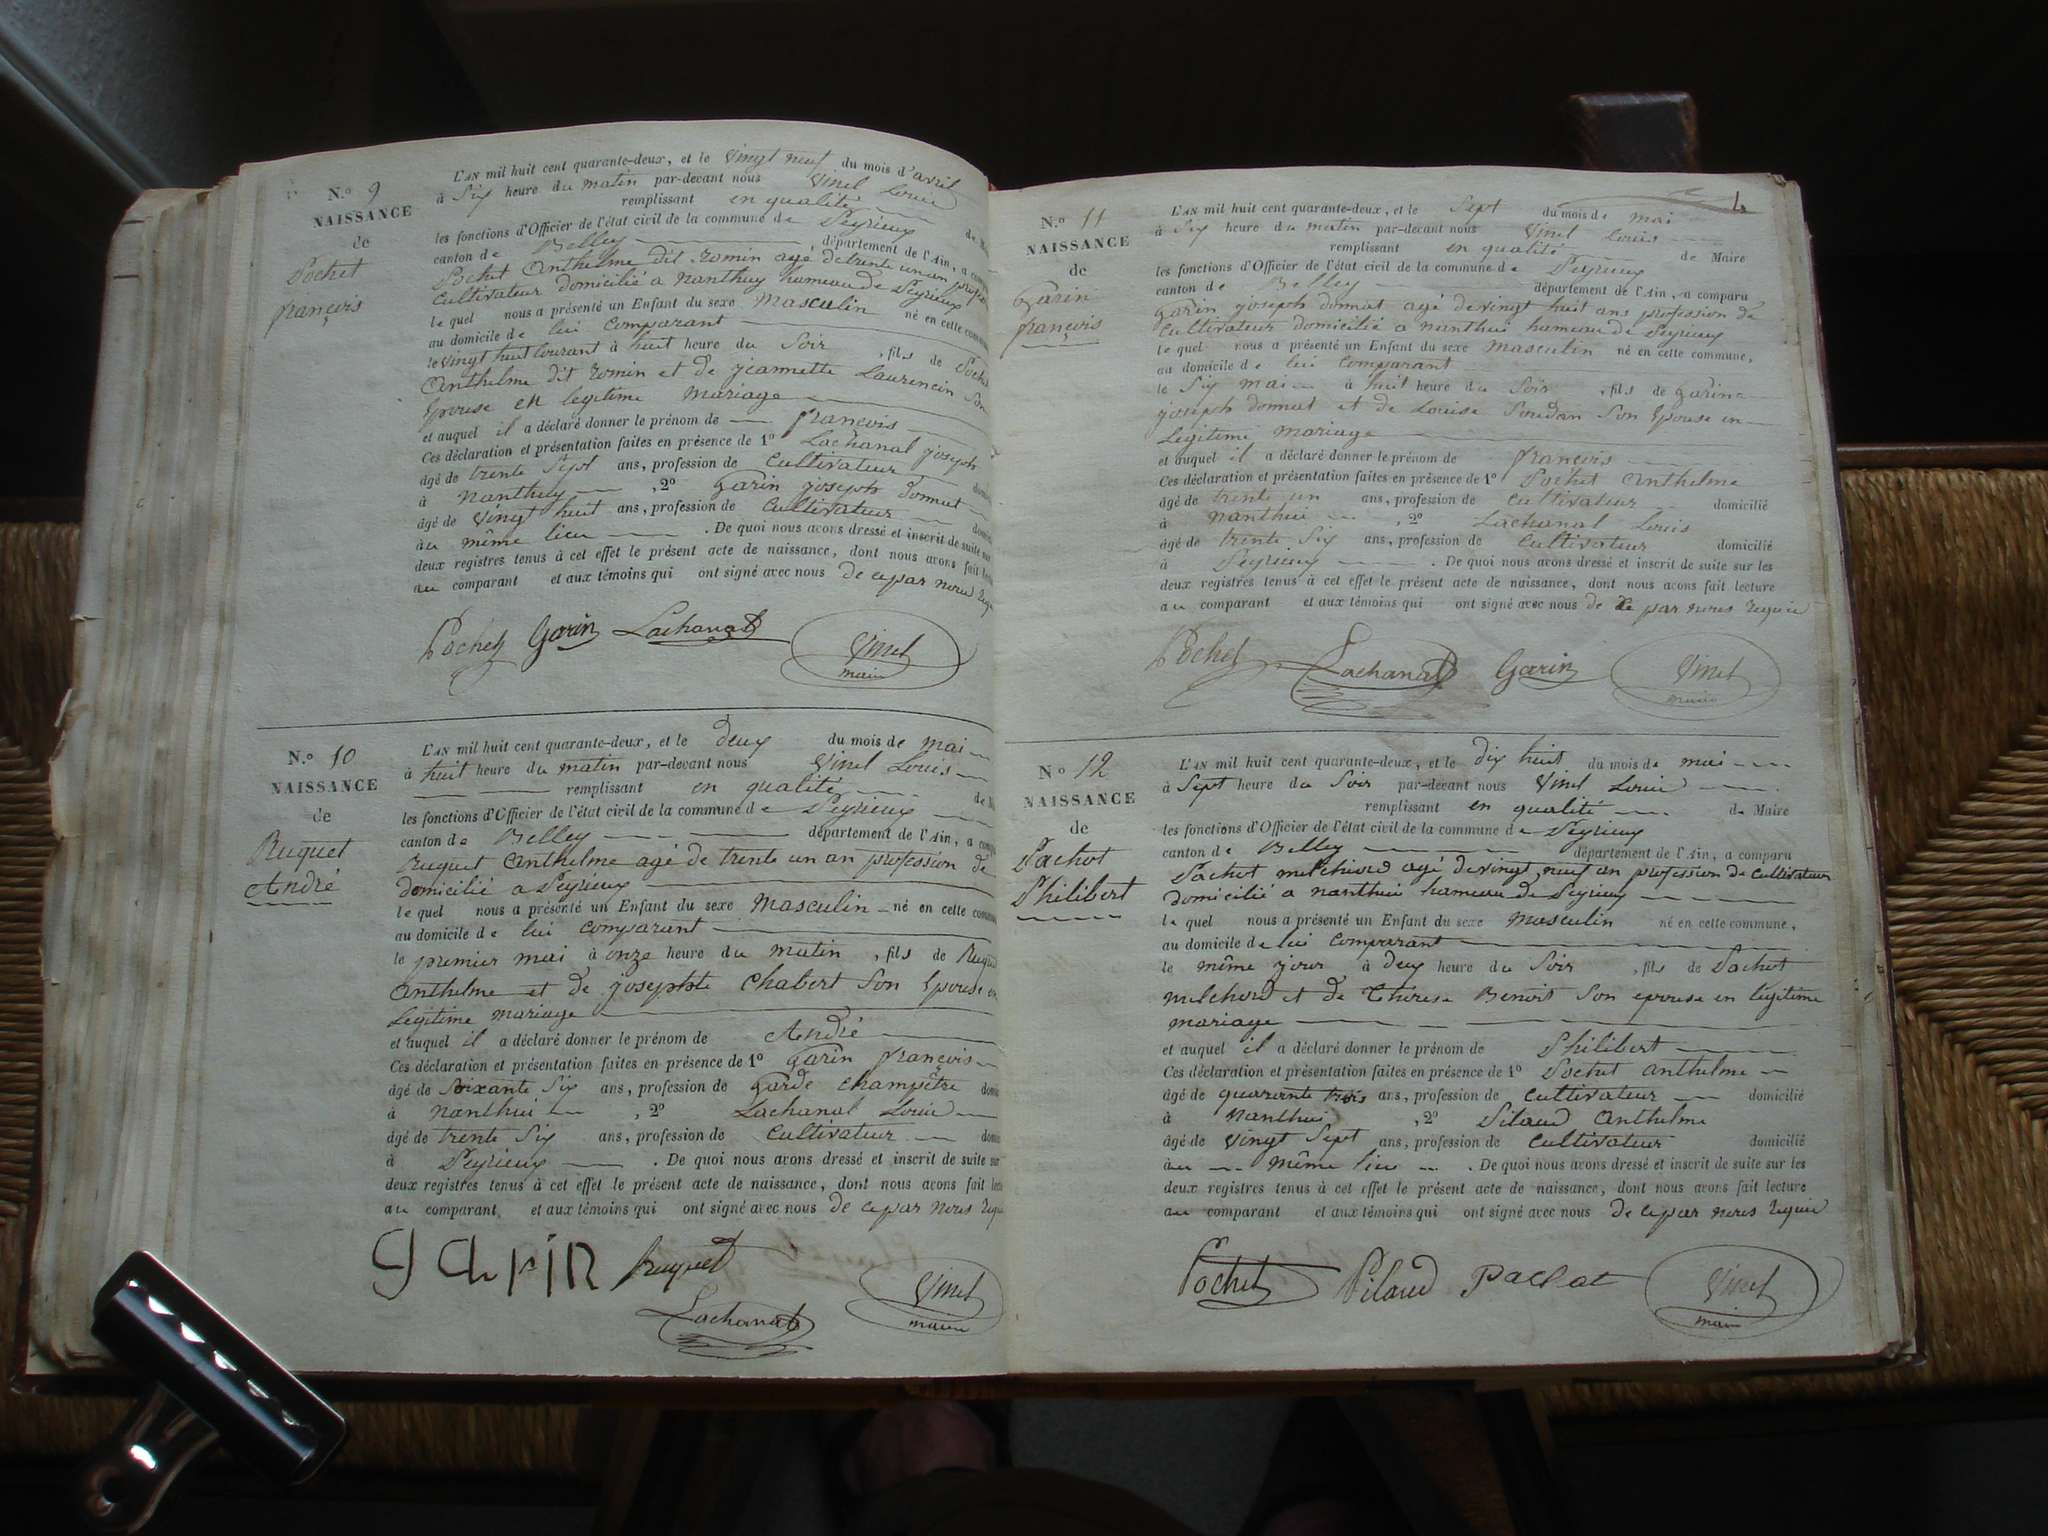 N.º 9
NAISSANCE
de
Pochet
françois
L'AN mil huit cent quarante-deux, et le vingt neuf du mois d'avril
à Six heure du matin par-devant nous Vinet Louis
remplissant en qualité de
les fonctions d'Officier de l'état civil de la commune de Peyrieux
canton de Belley département de l'Ain, a
Pochet Anthelme dit romin agé de trente un an
Cultivateur domicilié a nanthuy hameau de Peyrieux
le quel nous a présenté un Enfant du sexe Masculin né en cette
au domicile de lui Comparant
le vingt huit Courant à huit heure du Soir , fils de
Anthelme dit romin et de jeannette Laurencin Son
Epouse en legitime mariage
et auquel il a déclaré donner le prénom de françois
Ces déclaration et présentation faites en présence de 1º Lachanal joseph
âgé de trente Sept ans, profession de Cultivateur
à Nanthuy , 2º Garin joseph donnat
âgé de Vingt huit ans, profession de Cultivateur
au même lieu . De quoi nous avons dressé et inscrit de suite sur
deux registres tenus à cet effet le présent acte de naissance, dont nous avons fait
au comparant et aux témoins qui ont signé avec nous de ce par nous
Pochet Garin Lachanal Vinet
maire
N.º 10
NAISSANCE
de
Ruquet
André
L'AN mil huit cent quarante-deux, et le deux du mois de mai
à huit heure du matin par-devant nous Vinet Louis
remplissant en qualité de
les fonctions d'Officier de l'état civil de la commune de Peyrieux
canton de Belley département de l'Ain, a
Ruquet Anthelme agé de trente un an profession de
domicilié a Peyrieux
le quel nous a présenté un Enfant du sexe Masculin né en cette
au domicile de lui Comparant
le premier mai à onze heure du matin , fils de
Anthelme et de josephte Chabert Son Epouse en
Legitime mariage
et auquel il a déclaré donner le prénom de André
Ces déclaration et présentation faites en présence de 1º Garin françois
âgé de Soixante Six ans, profession de Garde champêtre
à Nanthui , 2º Lachanal Louis
âgé de trente Six ans, profession de Cultivateur
à Peyrieux . De quoi nous avons dressé et inscrit de suite sur
deux registres tenus à cet effet le présent acte de naissance, dont nous avons fait
au comparant et aux témoins qui ont signé avec nous de ce par nous
garin ruquet
Lachanal Vinet
maire
N.º 11
NAISSANCE
de
Garin
françois
L'AN mil huit cent quarante-deux, et le Sept du mois de mai
à Six heure du matin par-devant nous Vinet Louis
remplissant en qualité de Maire
les fonctions d'Officier de l'état civil de la commune de Peyrieux
canton de Belley département de l'Ain, a comparu
Garin joseph donnat agé de vingt huit ans profession de
Cultivateur domicilié a nanthui hameau de Peyrieux
le quel nous a présenté un Enfant du sexe Masculin né en cette commune,
au domicile de lui Comparant
le Six mai à huit heure du Soir , fils de Garin
joseph donnat et de Louise Soudan Son Epouse en
Legitime mariage
et auquel il a déclaré donner le prénom de françois
Ces déclaration et présentation faites en présence de 1º Pochet Anthelme
âgé de trente un ans, profession de Cultivateur domicilié
à Nanthui , 2º Lachanal Louis
âgé de trente Six ans, profession de Cultivateur domicilié
à Peyrieux . De quoi nous avons dressé et inscrit de suite sur les
deux registres tenus à cet effet le présent acte de naissance, dont nous avons fait lecture
au comparant et aux témoins qui ont signé avec nous de ce par nous requis
Pochet Lachanal Garin Vinet
maire
N.º 12
NAISSANCE
de
Pachot
Philibert
L'AN mil huit cent quarante-deux, et le dix huit du mois de mai
à Sept heure du Soir par-devant nous Vinet Louis
remplissant en qualité de Maire
les fonctions d'Officier de l'état civil de la commune de Peyrieux
canton de Belley département de l'Ain, a comparu
Pachot melchiord agé de vingt neuf an profession de Cultivateur
domicilié a nanthui hameau de Peyrieux
le quel nous a présenté un Enfant du sexe Masculin né en cette commune,
au domicile de lui Comparant
le même jour à deux heure du Soir , fils de Pachot
melchiord et de Thérèse Benoit Son epouse en legitime
mariage
et auquel il a déclaré donner le prénom de Philibert
Ces déclaration et présentation faites en présence de 1º Pochet Anthelme
âgé de quarante trois ans, profession de Cultivateur domicilié
à Nanthui , 2º Pilaud Anthelme
âgé de Vingt Sept ans, profession de Cultivateur domicilié
au même lieu . De quoi nous avons dressé et inscrit de suite sur les
deux registres tenus à cet effet le présent acte de naissance, dont nous avons fait lecture
au comparant et aux témoins qui ont signé avec nous de ce par nous requis
Pochet Pilaud Pachot Vinet
maire